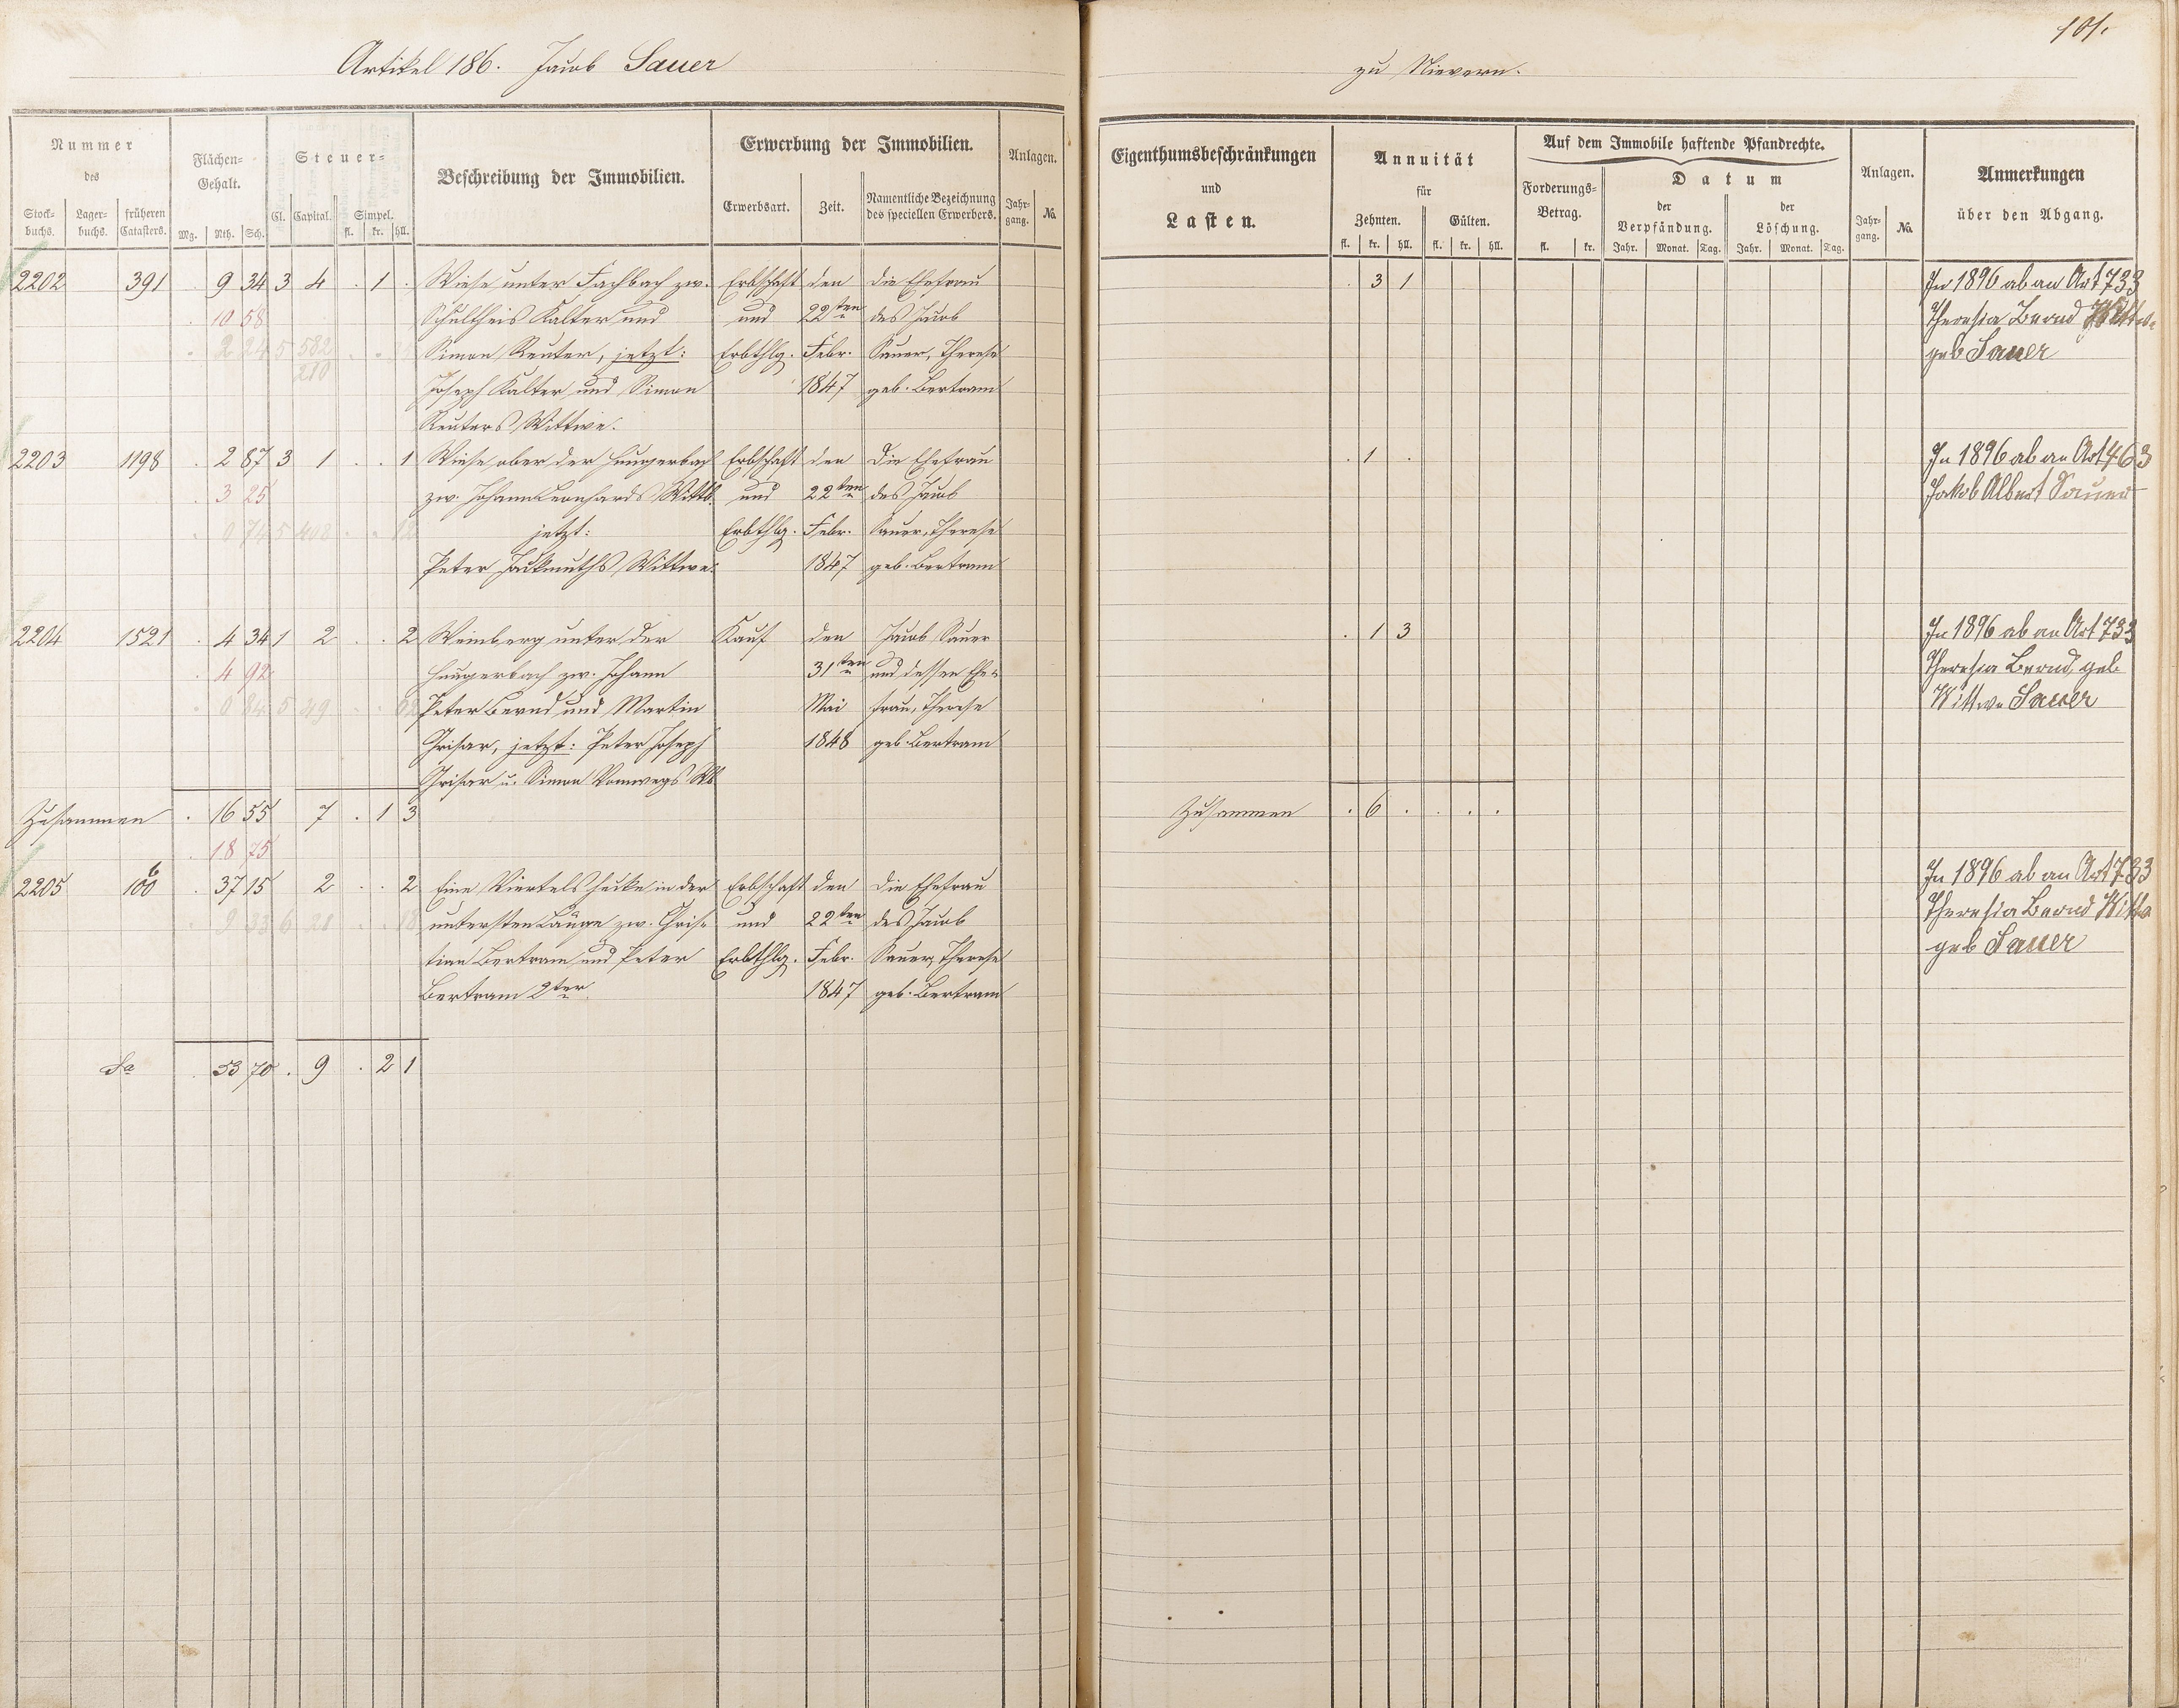 Artikel 186. Jacob Sauer
zu Nievern.
101.
Nummer
des
Stock-
buchs.
Lager-
buchs.
früheren
Catasters.
Flächen-
Gehalt.
Mg. Rth. Sch.
Steuer-
Cl. Capital. Simpel.
fl. kr. hll.
Beschreibung der Immobilien.
Erwerbung der Immobilien.
Erwerbsart. Zeit. Namentliche Bezeichnung
des speciellen Erwerbers.
Anlagen.
Jahr-
gang. No.
Eigenthumsbeschränkungen
und
Lasten.
Annuität
für
Zehnten. Gülten.
fl. kr. hll. fl. kr. hll.
Auf dem Immobile haftende Pfandrechte.
Forderungs-
Betrag.
fl. kr.
Datum
der
Verpfändung.
der
Löschung.
Jahr. Monat. Tag. Jahr. Monat. Tag.
Anlagen.
Jahr-
gang. No.
Anmerkungen
über den Abgang.
2202 391 . 9 34 3 4 . 1 . Wiese unter Fachbach zw. Erbschaft den die Ehefrau . 3 1 In 1896 ab an Art 733
. 10 58 Schultheis Kalter und und 22ten des Jacob Theresia Bernd Wittwe
. 2 24 5 582 Simon Reuter, jetzt: Erbthlg. Febr. Sauer, Therese geb Sauer
210
Joseph Kalter und Simon 1847 geb. Bertram
Reuters Wittwe.
2203 1198 . 2 87 3 1 . . 1 Wiese ober der Hungerbach Erbschaft den die Ehefrau . 1 . In 1896 ab an Art 463
. 3 25 zw. Johann Leonhards Wittb. und 22ten des Jacob Jakob Albert Sauer
. 0 74 5 408 . . 12 jetzt: Erbthlg. Febr. Sauer, Therese
Peter Wittwe. 1847 geb. Bertram
2204 1521 . 4 34 1 2 . . 2 Weinberg unter der Kauf den Jacob Sauer . 1 3 In 1896 ab an Art 733
. 4 92 Hungerbach zw. Johann 31ten und dessen Ehe- Theresia Bernd, geb
. 0 84 5 49 Peter Bernd und Martin Mai frau, Therese Wittwe Sauer
Grisar, jetzt: Peter Joseph 1848 geb. Bertram
Grisar u. Simon Wb
Zusammen . 16 55 7 . 1 3 Zusammen . 6 . . . .
. 18 75
2205 100 6 . 37 15 2 . . 2 Eine Viertels Hecke in der Erbschaft den die Ehefrau In 1896 ab an Art 733
. 9 33 6 21 . . 18 untersten Länge zw. Chris- und 22ten des Jacob Theresia Bernd Wittw
tian Bertram und Peter Erbthlg. Febr. Sauer, Therese geb Sauer
Bertram 2ter. 1847 geb. Bertram
Sa . 53 70 . 9 . 2 1